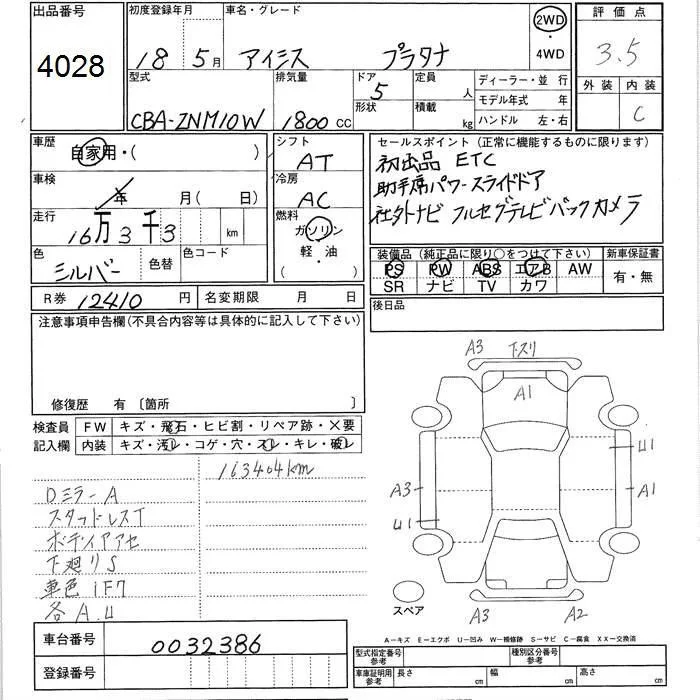 出品番号 初度登録年月 車名・グレード 2WD 評価点
4028 18 5月 アイシス プラタナ 4WD 3.5
型式 排気量 ドア 定員 ディーラー・並 行 外装 内装
5 人 モデル年式 年 C
CBA-ZNM10W 1800 CC 形状 積載 kg ハンドル 左・右
車歴 自家用・( ) シフト AT セールスポイント(正常に機能するものに限ります)
初出品 ETC
車検 年 月( 日) 冷房 AC 助手席パワースライドドア
走行 16万3千3 km 燃料 ガソリン 社外ナビ フルセグテレビ バックカメラ
色 シルバー 色替 色コード 軽・油 ( ) 装備品(純正品に限り○をつけて下さい) 新車保証書
PS PW ABS エアB AW 有・無
SR ナビ TV カワ
R券 12410 円 名変期限 月 日 後日品
注意事項申告欄(不具合内容等は具体的に記入して下さい)
修復歴 有 〔箇所
検査員 FW キズ・飛石・ヒビ割・リペア跡・×要
記入欄 内装 キズ・汚レ・コゲ・穴・スレ・キレ・破レ
163404km
DミラーA
スタッドレスT
ボディイアアセ
下廻りS
車色1F7
各A.U
A3 下スリ
A1
U1
A3 A1
U1
スペア
A3 A2
A-キズ E-エクボ U-凹み W-補修跡 S-サビ C-腐食 XX-交換済
車台番号 0032386
登録番号
型式指定番号 参考 種別区分番号 参考
車庫証明用 参考 長さ cm 幅 cm 高さ cm